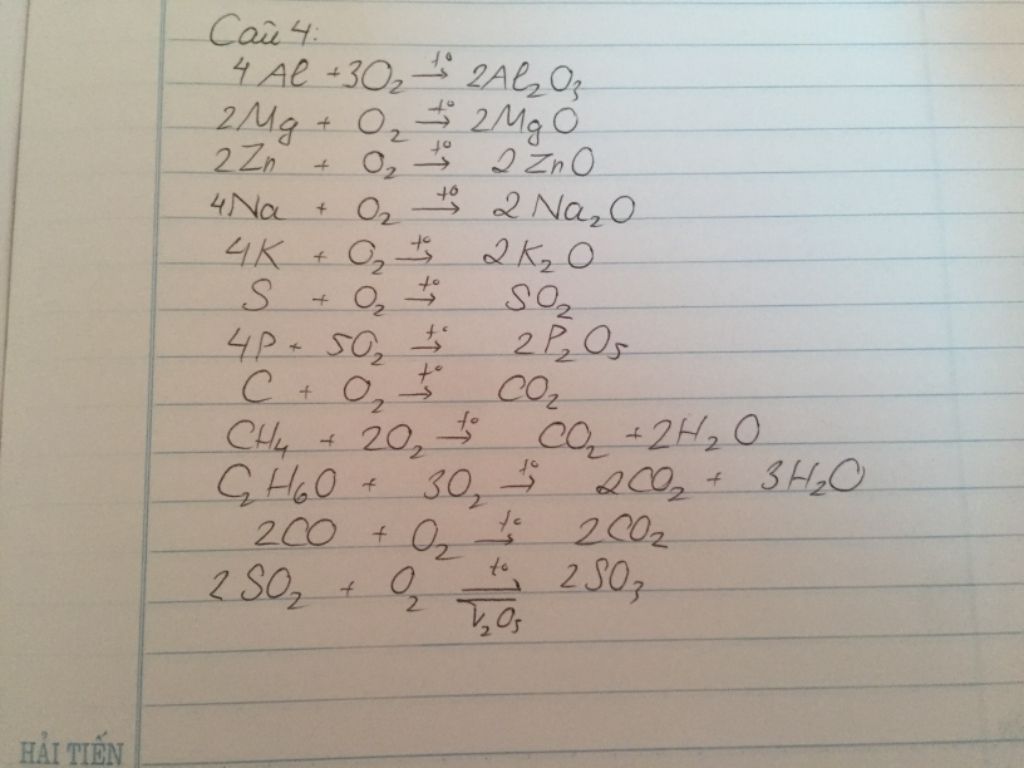 Câu 4:
4Al + 3O₂ →(t°) 2Al₂O₃
2Mg + O₂ →(t°) 2MgO
2Zn + O₂ →(t°) 2ZnO
4Na + O₂ →(t°) 2Na₂O
4K + O₂ →(t°) 2K₂O
S + O₂ →(t°) SO₂
4P + 5O₂ →(t°) 2P₂O₅
C + O₂ →(t°) CO₂
CH₄ + 2O₂ →(t°) CO₂ + 2H₂O
C₂H₆O + 3O₂ →(t°) 2CO₂ + 3H₂O
2CO + O₂ →(t°) 2CO₂
2SO₂ + O₂ ⇌(t°, V₂O₅) 2SO₃
HẢI TIẾN